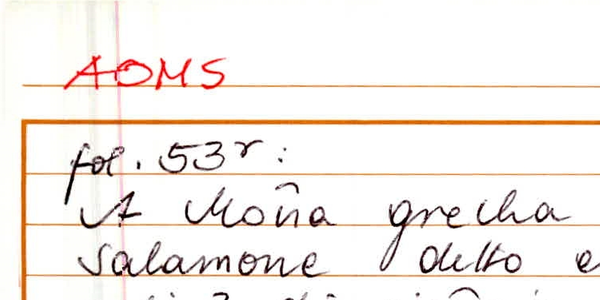 AOMS
fol. 53r:
A Moña grecha
Salamone detto e